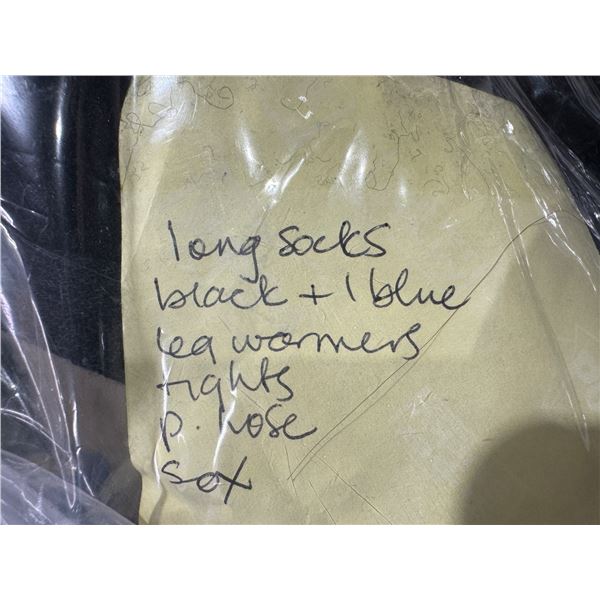 long socks
black + 1 blue
leg warmers
tights
p. hose
sox